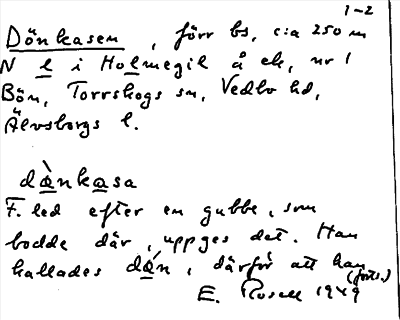 1-2
Dönkasen, förr bs, c:a 250 m
N l i Holmegil å ek, nr 1
Bön, Torrskogs sn, Vedbo hd,
Älvsborgs l.
dànkasa
F. led efter en gubbe, som
bodde där, uppges det. Han
kallades dán, därför att han
(forts.)
E. Rosell 1949